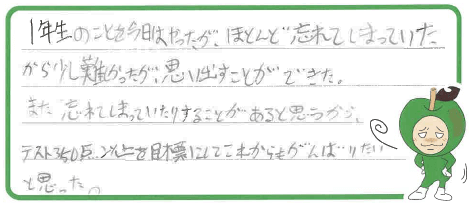 1年生のことを今日はやったが、ほとんど忘れてしまっていた
から少し難かったが、思い出すことができた。
また忘れてしまっていたりすることがあると思うから、
テスト350点以上を目標にしてこれからもがんばりたい
と思った。